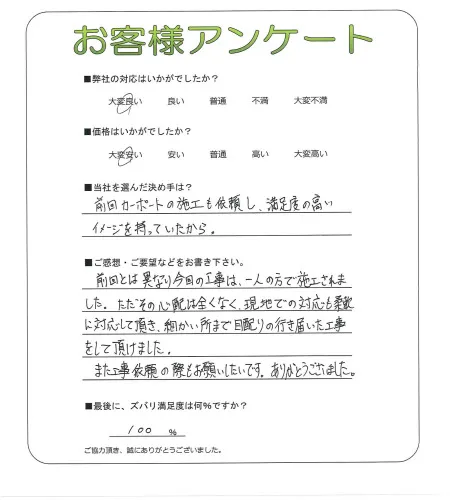 お客様アンケート
■弊社の対応はいかがでしたか？
大変良い 良い 普通 不満 大変不満
■価格はいかがでしたか？
大変安い 安い 普通 高い 大変高い
■当社を選んだ決め手は？
前回カーポートの施工も依頼し、満足度の高い
イメージを持っていたから。
■ご感想・ご要望などをお書き下さい。
前回とは異なり今回の工事は、一人の方で施工されま
した。ただその心配は全くなく、現地での対応も柔軟
に対応して頂き、細かい所まで目配りの行き届いた工事
をして頂けました。
また工事依頼の際もお願いしたいです。ありがとうございました。
■最後に、ズバリ満足度は何%ですか？
100 %
ご協力頂き、誠にありがとうございました。